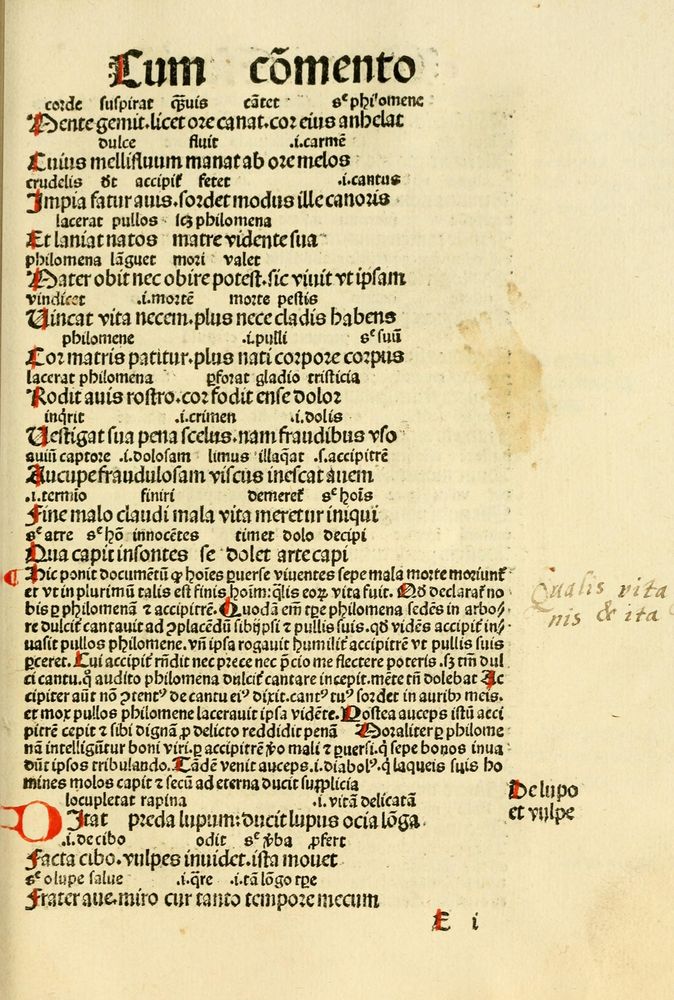 Cum cōmento
corde suspirat q̄uis cātet sᶜ phi'omene
Mente gemit. licet ore canat. cor eius anhelat
dulce fluit .i.carmē
Cuius mellifluum manat ab ore melos
crudelis accipiť fetet .i.cantus
Impia fatur auis. sordet modus ille canoris
lacerat pullos scꝫ philomena
Et laniat natos matre vidente sua
philomena lāguet mori valet
Mater obit nec obire potest. sic viuit vt ipsam
vindicet .i.mortē morte pestis
Uincat vita necem. plus nece cladis habens
philomene .i.pulli sᶜ suū
Cor matris patitur. plus nati corpore corpus
lacerat philomena ꝑforat gladio tristicia
Rodit auis rostro. cor fodit ense dolor
inq̄rit .i.crimen .i.dolis
Uestigat sua pena scelus. nam fraudibus vso
auiū captore .i.dolosam limus illaq̄at .s.accipitrē
Aucupe fraudulosam viscus inescat auem
.i.termīo finiri demereť sᶜ hoīs
Fine malo claudi mala vita meretur iniqui
sᶜ atre sᶜ hō innocētes timet dolo decipi
Qua capit insontes se dolet arte capi
¶ Hic ponit documētū ꝙ hoīes ꝑuerse viuentes sepe mala morte moriunť
et vt in plurimū talis est finis hoīm: q̄lis eoꝝ vita fuit. Qd̄ declarať no
bis ꝑ philomenā ⁊ accipitrē. Quodā em̄ tꝑe philomena sedēs in arbo
re dulciť cantauit ad ꝯplacēdū sibijpsi ⁊ pullis suis. qd̄ vidēs accipiť in
uasit pullos philomene. vn̄ ipsa rogauit humiliť accipitrē vt pullis suis
ꝑceret. Cui accipiť rn̄dit nec prece nec p̄cio me flectere poteris. sꝫ tm̄ dul
ci cantu. q̇ audito philomena dulciť cantare incepit. mēte tn̄ dolebat Ac
cipiter aut nō ꝯtentꝰ de cantu eiꝰ dixit. cantꝰ tuꝰ sordet in auribꝰ meis.
et mox pullos philomene lacerauit ipsa vidēte. Postea auceps istū acci
pitrē cepit ⁊ sibi dignā ꝓ delicto reddidit penā Moraliter ꝑ philome
nā intelligūtur boni viri. ꝑ accipitrē v̄o mali ⁊ ꝑuersi. q̇ sepe bonos inua
dūt ipsos tribulando. Tādē venit auceps .i.diabolꝰ. q̇ laqueis suis ho
mines molos capit ⁊ secū ad eterna ducit supplicia
Qualis vita
nis & ita
De lupo
et vulpe
locupletat rapina .i. vitā delicatā
DItat preda lupum: ducit lupus ocia lōga
.i.de cibo odit sᶜ v̄ba ꝓfert
Facta cibo. vulpes inuidet. ista mouet
sᶜ o lupe salue .i.q̄re .i.tā lōgo tꝑe
Frater aue. miro cur tanto tempore mecum
E i